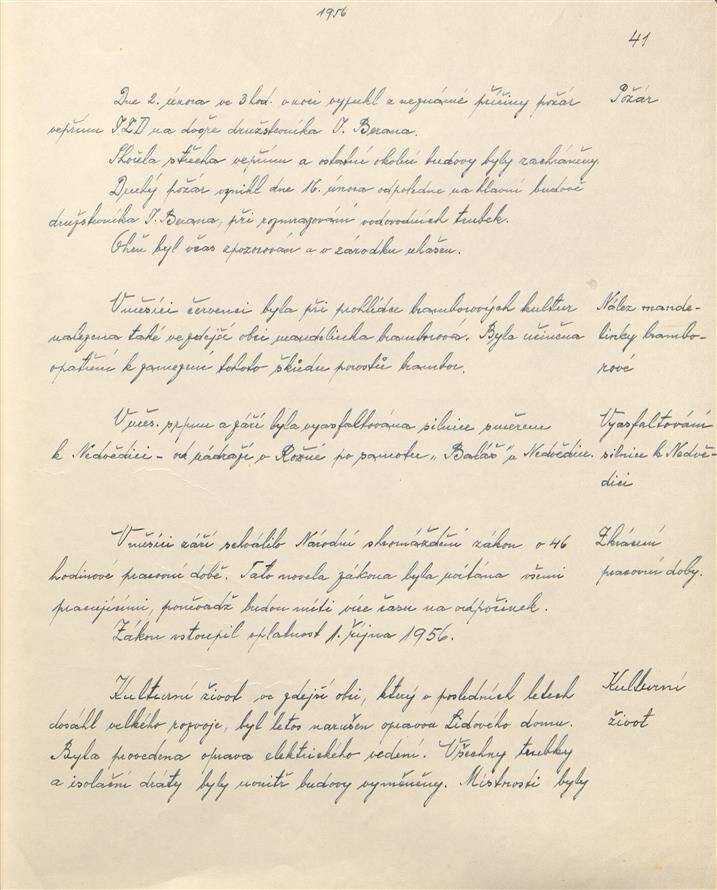 1956
41
Dne 2. února ve 3 hod. v noci vypukl z neznámé příčiny požár
Požár
vepřínu JZD na dvoře družstevníka J. Berana.
Shořela střecha vepřínu a ostatní okolní budovy byly zachráněny.
Druhý požár vznikl dne 16. února odpoledne na hlavní budově
družstevníka J. Berana, při rozmrazování vodovodních trubek.
Oheň byl včas zpozorován a v zárodku uhašen.
V měsíci červenci byla při prohlídce bramborových kultur
Nález mande-
nalezena také ve zdejší obci mandelinka bramborová. Byla učiněna
linky brambo-
opatření k zamezení tohoto škůdce porostů brambor.
rové
V měs. srpnu a září byla vyasfaltována silnice směrem
Vyasfaltování
k Nedvědici – od nádraží v Rožné po samotu „Baláš" u Nedvědice.
silnice k Nedvě-
dici
V měsíci září schválilo Národní shromáždění zákon o 46
Zkrácení
hodinové pracovní době. Tato novela zákona byla uvítána všemi
pracovní doby.
pracujícími, poněvadž budou míti více času na odpočinek.
Zákon vstoupil v platnost 1. října 1956.
Kulturní život ve zdejší obci, který v posledních letech
Kulturní
dosáhl velkého rozvoje, byl letos narušen opravou Lidového domu.
život
Byla provedena oprava elektrického vedení. Všechny trubky
a isolační dráty byly uvnitř budovy vyměněny. Místnosti byly